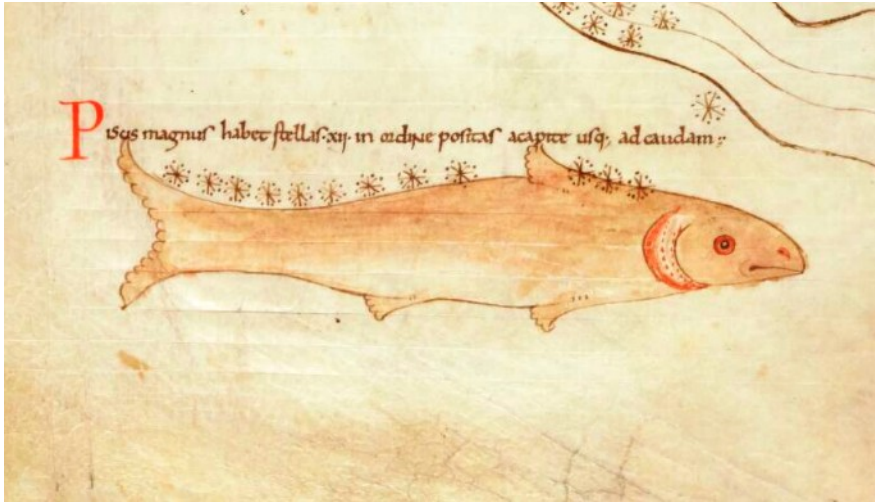 Piscis magnus habet stellas·xii· in ordine positas acapite usq; ad caudam;